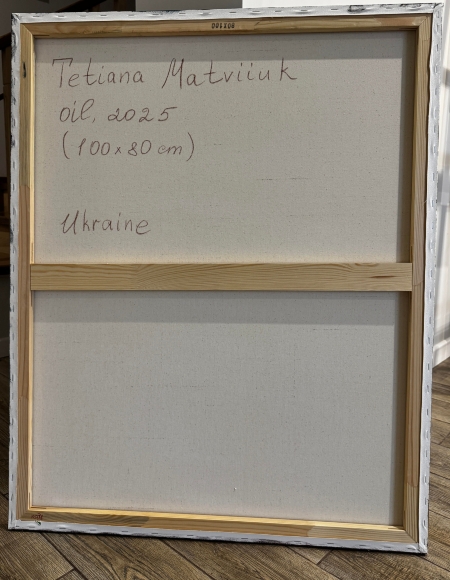 Tetiana Matviiuk
oil, 2025
(100x80 cm)
Ukraine